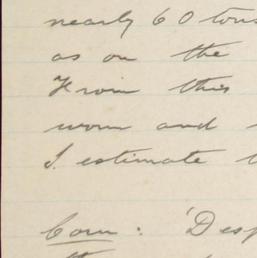 nearly 60 tons
as on the
From this
worn and
I estimate
Corn: 'Desp